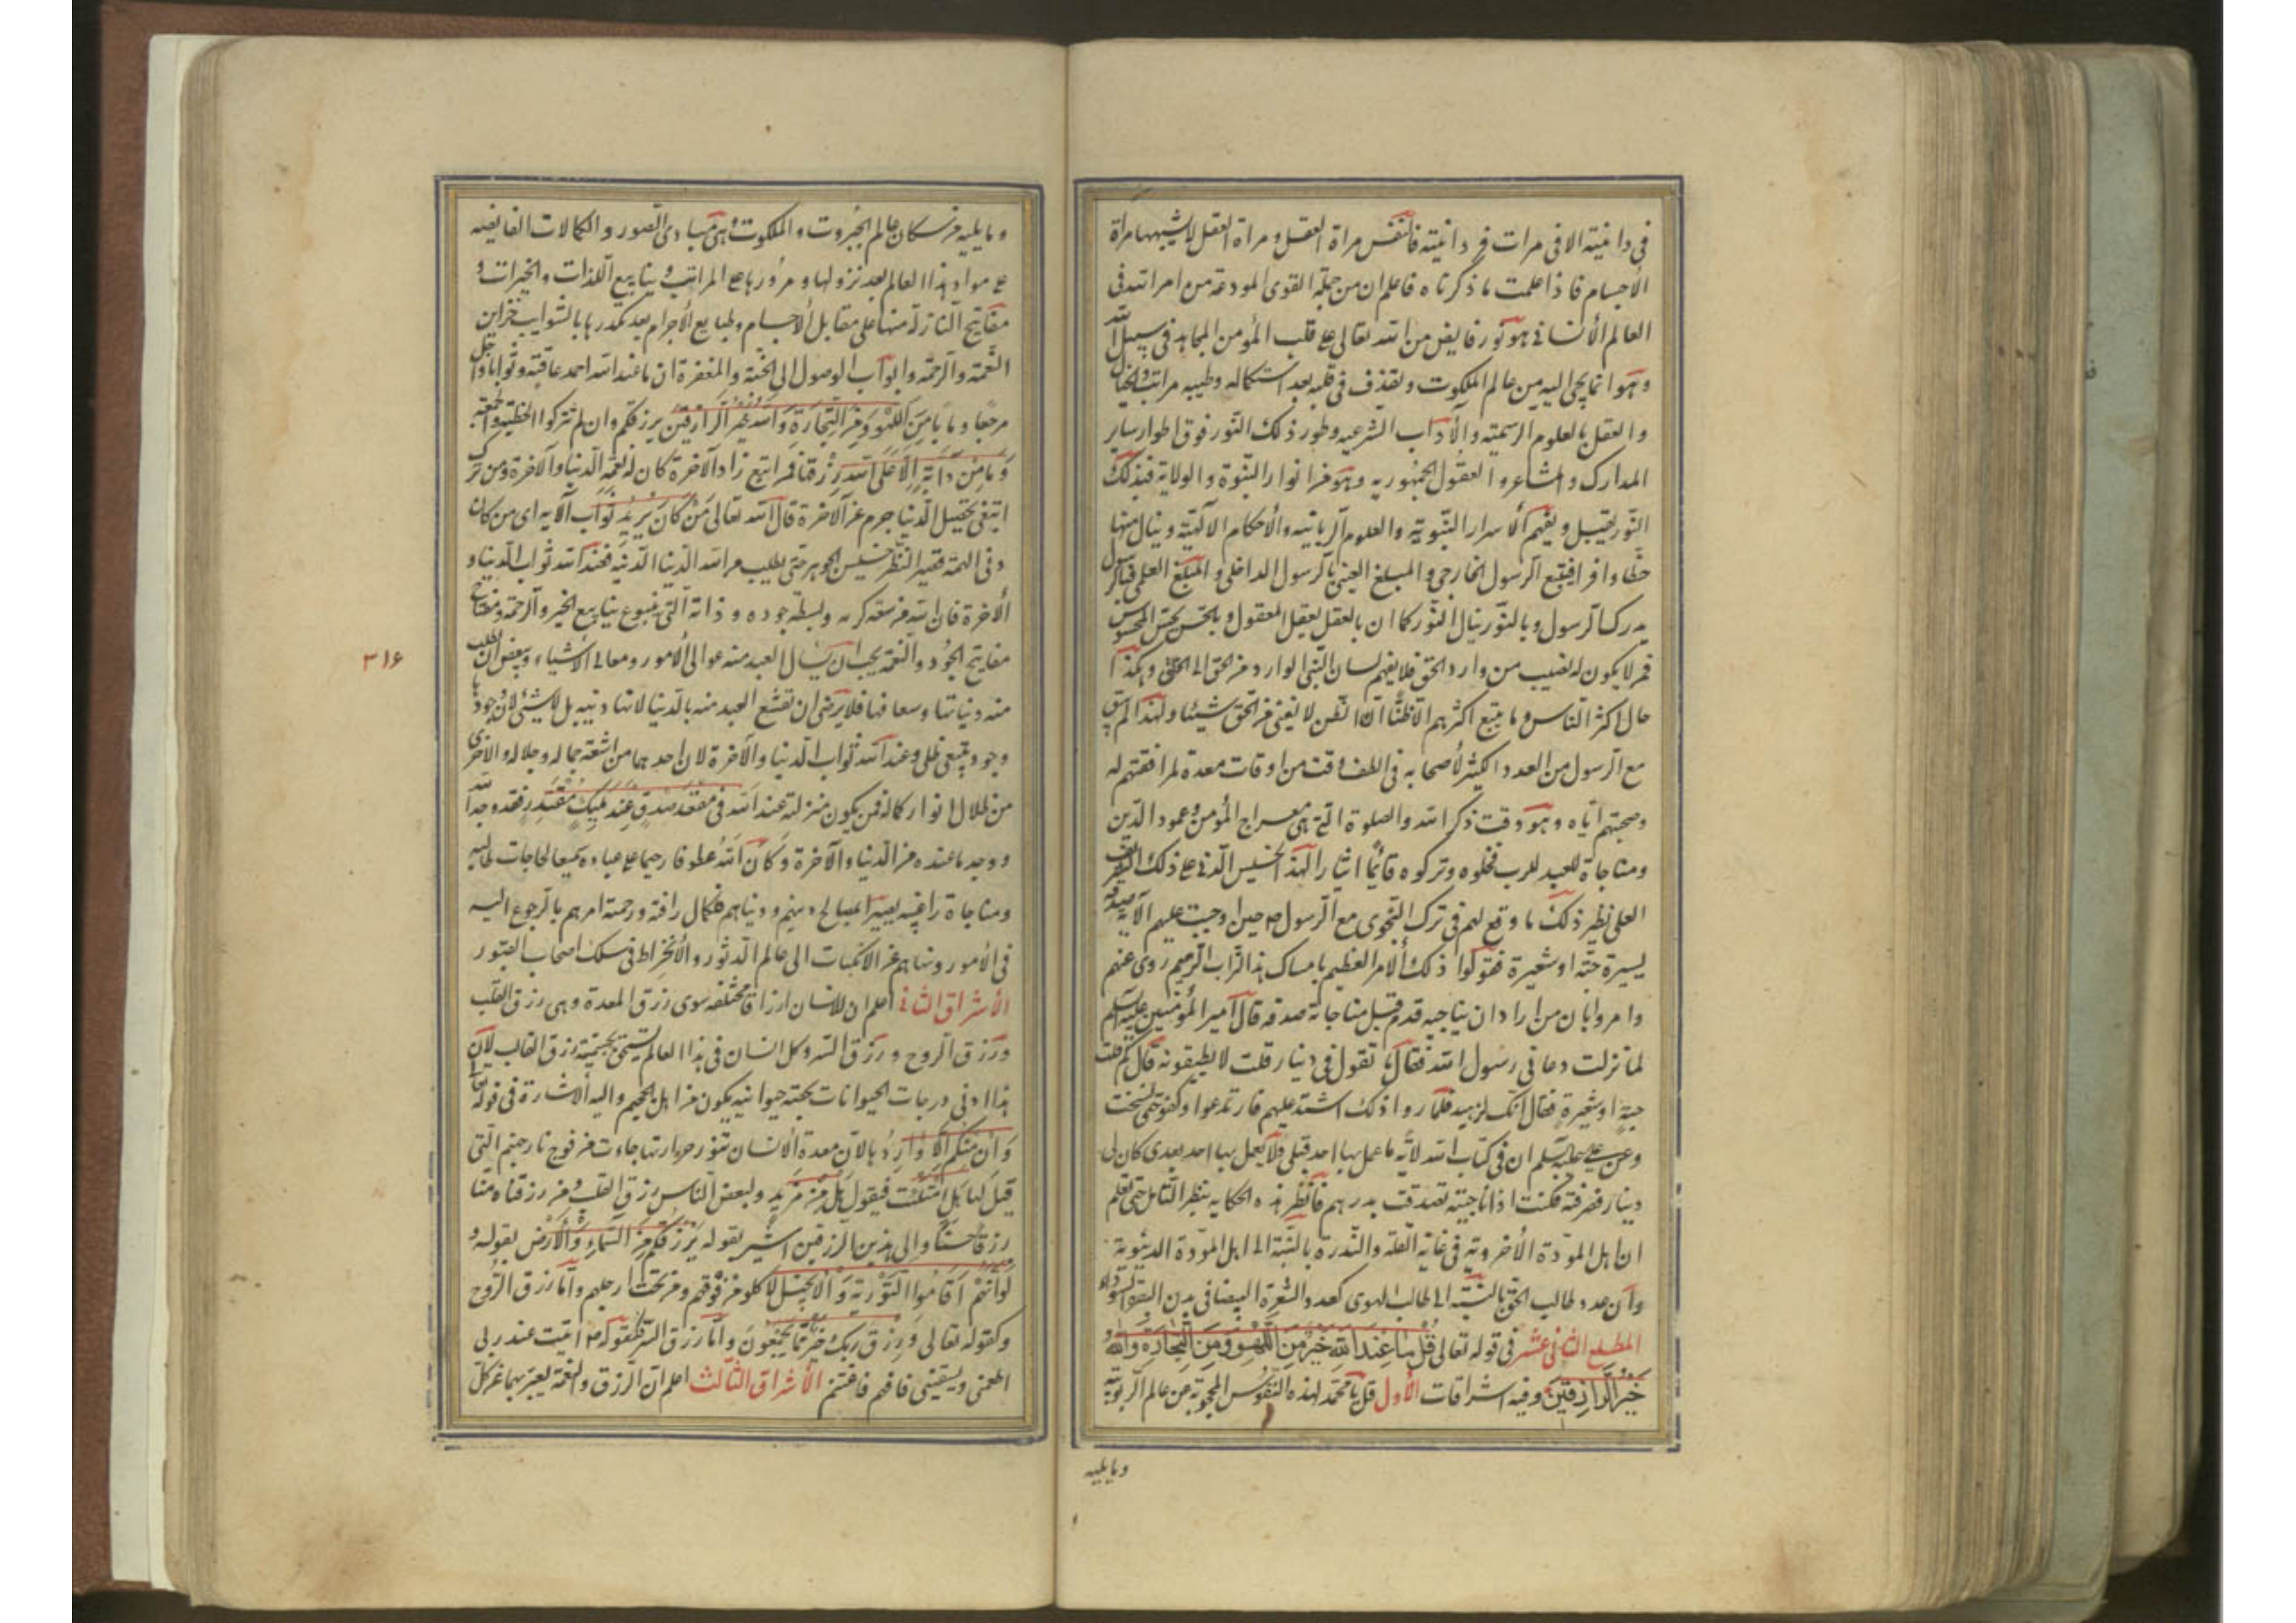 في دانيته الا في مرات فردانيته فالنفس مراة العقل ومراة العقل لا يشبهها مراة
الأجسام فاذا علمت ما ذكرناه فاعلم ان من جملة القوى المودعة من امر الله في
العالم الأنساني هو نور فايض من الله تعالى على قلب المؤمن المجاهد في سبيل الله
وهو انما يجئ اليه من عالم الملكوت ويقذف في قلبه بعد استكماله وطييه مراتب الخيال
والعقل بالعلوم الرسمية والآداب الشرعيه وطور ذلك النور فوق اطوار ساير
المدارك والمشاعر والعقول الجمهوريه وهو من انوار النبوة والولاية فبذلك
النور يقبل ويفهم الأسرار النبوية والعلوم الربانيه والأحكام الالهية وينال منها
حظا وافرا فيتبع الرسول الخارجي والمبلغ العيني بالرسول الداخلي والمبلغ العلمي فبالرسول
يدرك الرسول وبالنور ينال النور كما ان بالعقل يعقل المعقول وبالحس يحس المحسوس
فمن لا يكون له نصيب من وارد الحق فلا يفهم لسان النبي الوارد من الحق الى الخلق وهكذا
حال اكثر الناس وما يتبع اكثرهم الا ظنا ان الظن لا يغني من الحق شيئا ولهذا لم يبق
مع الرسول من العدد الكثير لأصحابه في الطف وقت من اوقات معدة لمرافقتهم له
وصحبتهم اياه وهو وقت ذكر الله والصلوة التي هي معراج المؤمن وعمود الدين
ومناجاة للعبد للرب فخلوه وتركوه قائما ايثارا لهذا الخسيس الدني على ذلك الشريف
العلي نظير ذلك ما وقع لهم في ترك النجوى مع الرسول ص حين اوجبت عليهم الآية صدقة
يسيرة حبة او شعيرة فتركوا ذلك الأمر العظيم بامساك هذا التراب الرميم روى عنهم
وامروا بان من اراد ان يناجيه قدم قبل مناجاته صدقه قال امير المؤمنين عليه السلم
لما نزلت دعاني رسول الله فقال ما تقول في دينار قلت لا يطيقونه قال كم قلت
حبة او شعيرة فقال انك لزهيد فلما راوا ذلك اشتد عليهم فارتدعوا وكفوا حتى نسخت
وعن علي عليه السلم ان في كتاب الله لآية ما عمل بها احد قبلي ولا يعمل بها احد بعدى كان لي
دينار فصرفته فكنت اذا ناجيته تصدقت بدرهم فانظر هذه الحكايه بنظر التامل حتى تعلم
ان اهل المودة الأخروية في غاية القلة والندرة بالنسبة الى اهل المودة الدنيوية
وان عدد طالب الحق بالنسبة الى طالب الهوى كعدد الشعرة البيضا في بدن البقر السوداء
المطلع الثاني عشر في قوله تعالى قُلْ مَا عِنْدَ اللهِ خَيْرٌ مِنَ اللَّهْوِ وَمِنَ التِّجَارَةِ وَاللهُ
خَيْرُ الرَّازِقِينَ وفيه اشراقات الأول قل يا محمد لهذه النفوس المحجوبة عن عالم الربوبية
وما يليه
وما يليه من سكان عالم الجبروت والملكوت وهي مبادى الصور والكمالات الفايضه
على مواد هذا العالم بعد نزولها ومرورها على المراتب وينابيع اللذات والخيرات و
مفاتيح النازلة منها على مقابل الأجسام وطبايع الأجرام بعد تكدرها بالشوايب خزاين
النعمة والرحمة وابواب الوصول الى الجنة والمغفرة ان ما عند الله احمد عاقبة وثوابا واجل
مرجعا ومابا مِنَ اللَّهْوِ وَمِنَ التِّجَارَةِ وَاللهُ خَيْرُ الرَّازِقِينَ يرزقكم وان لم تتركوا الخطبة والجمعة
وَمَا مِنْ دَابَّةٍ إِلَّا عَلَى اللهِ رِزْقُهَا فمن ابتغ زاد الآخرة كان له نعمة الدنيا والآخرة ومن ترك
ابتغى تحصيل الدنيا حرم عن الآخرة قال الله تعالى مَنْ كَانَ يُرِيدُ ثَوَابَ الآيه اى من كان
دني الهمة قصير النظر خسيس الجوهر حتى يطلب من الله الدنيا الدنيه فعند الله ثواب الدنيا و
الأخرة فان الله من سعة كرمه وبسطه جوده وذاته التي ينبوع ينابيع الخير والرحمة ومفتاح
مفاتيح الجود والنعمة يجب ان يسال العبد منه عوالى الأمور ومعالى الأشياء وبعض ان طلب
٣١۶
منه دنياتنا وسعافها فلا يرضى ان تقنع العبد منه بالدنيا لانها دنيه بل لا شيئ لان وجودها
وجود تبعى ظلى وعند الله ثواب الدنيا والآخرة لان احدهما من اشعة جماله وجلاله والاخرى
من ظلال انوار كماله فمن يكون منزلته عند الله في مَقْعَدِ صِدْقٍ عِنْدَ مَلِيكٍ مُقْتَدِرٍ فقد وجد الله
ووجد ما عنده من الدنيا والآخرة وَكَانَ اللهُ عطوفا رحيما على عباده سميعا لحاجات طالبيه
ومناجاة راغبيه بصيرا لمصالح دينهم ودنياهم فكمال رافته ورحمته امرهم بالرجوع اليه
في الأمور ونباهم عن الانكباب الى عالم الدثور والأنخراط في سلك اصحاب القبور
الأشراق الثاني اعلم ان للانسان ارزاقا مختلفه سوى رزق المعدة وهى رزق القلب
ورزق الروح ورزق السر وكل انسان في هذا العالم يستحق بجسميته رزق القالب لان
هذا ادنى درجات الحيوانات بحتة حيوانيه يكون من اهل الجحيم واليه الأشارة في قوله تعالى
وَاِنْ مِنْكُمْ اِلَّا وَارِدُهَا لان معدة الانسان تنور حرارتها جاءت من فوح نار جهنم التي
قِيلَ لَهَا هَلِ امْتَلَئْتِ فيقول هَلْ مِنْ مَزِيدٍ ولبعض الناس رزق القلب وَمَنْ رزقناه منا
رزقا حسنا والى هذين الرزقين اشير بقوله يَرْزُقُكُمْ مِنَ السَّمَاءِ وَالْأَرْضِ بقوله و
لَوْ اَنَّهُمْ اَقَامُوا التَّوْرَيةَ وَالْاِنْجِيلَ لاكلوا من فوقهم ومن تحت ارجلهم واما رزق الروح
وكقوله تعالى وَرِزْقُ رَبِّكَ خَيْرٌ مِمَّا يَجْمَعُونَ واما رزق السر فلقوله ص ابيت عند ربى
يطعمنى ويسقينى فافهم فاغتنم الأشراق الثالث اعلم ان الرزق والنعمة يعبر بهما عن كل